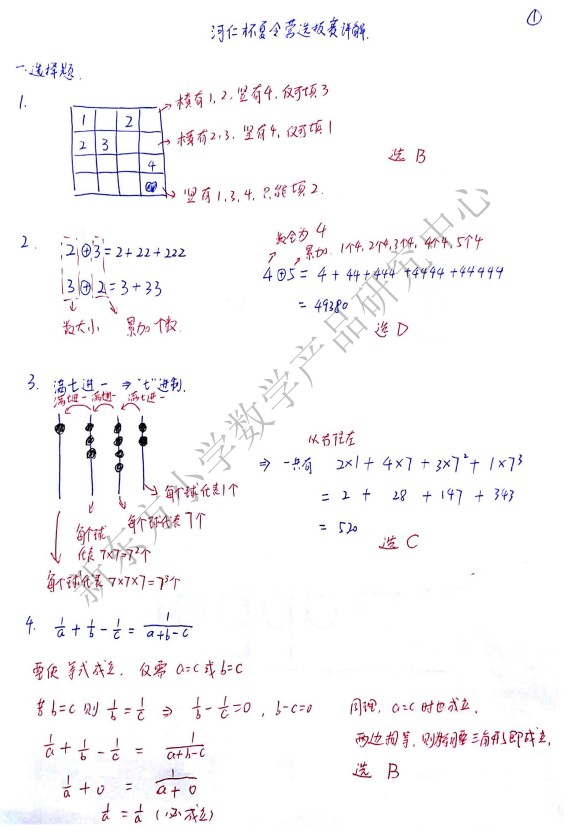 ①
河仁杯夏令营选拔赛详解.
一.选择题.
1.
1 2
2 3
4
横有1,2,竖有4,仅可填3
横有2,3,竖有4,仅可填1
竖有1,3,4,只能填2.
选 B
2.
2⊕3=2+22+222
3⊕2=3+33
数大小 累加个数.
数全为4
累加 1个4,2个4,3个4,4个4,5个4
4⊕5= 4+44+444+4444+44444
= 49380
选 D
3. 满七进一 ⇒ "七"进制.
满七进一 满七进一 满七进一
每个球代表1个
每个球代表7个
每个球
代表 7×7=7²个
每个球代表 7×7×7=7³个
从右往左
⇒ 一共有 2×1+4×7+3×7²+1×7³
= 2 + 28 + 147 + 343
= 520
选 C
4. 1/a + 1/b - 1/c = 1/(a+b-c)
要使等式成立, 仅需 a=c 或 b=c
若 b=c 则 1/b = 1/c ⇒ 1/b - 1/c = 0 , b-c=0
1/a + 1/b - 1/c = 1/(a+b-c)
1/a + 0 = 1/(a+0)
1/a = 1/a (必成立)
同理, a=c 时也成立.
两边相等, 则等腰三角形即成立,
选 B
新东方小学数学产品研究中心